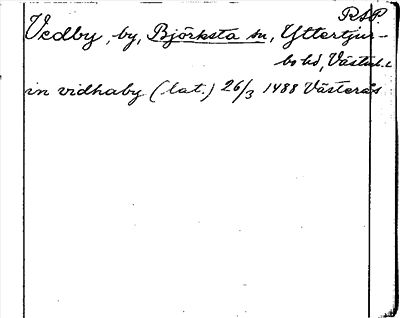 RSP.
Vedby, by, Björksta sn, Yttertjur-
bo hd, Västml.
in vidhaby (lat.) 26/3 1488 Västerås